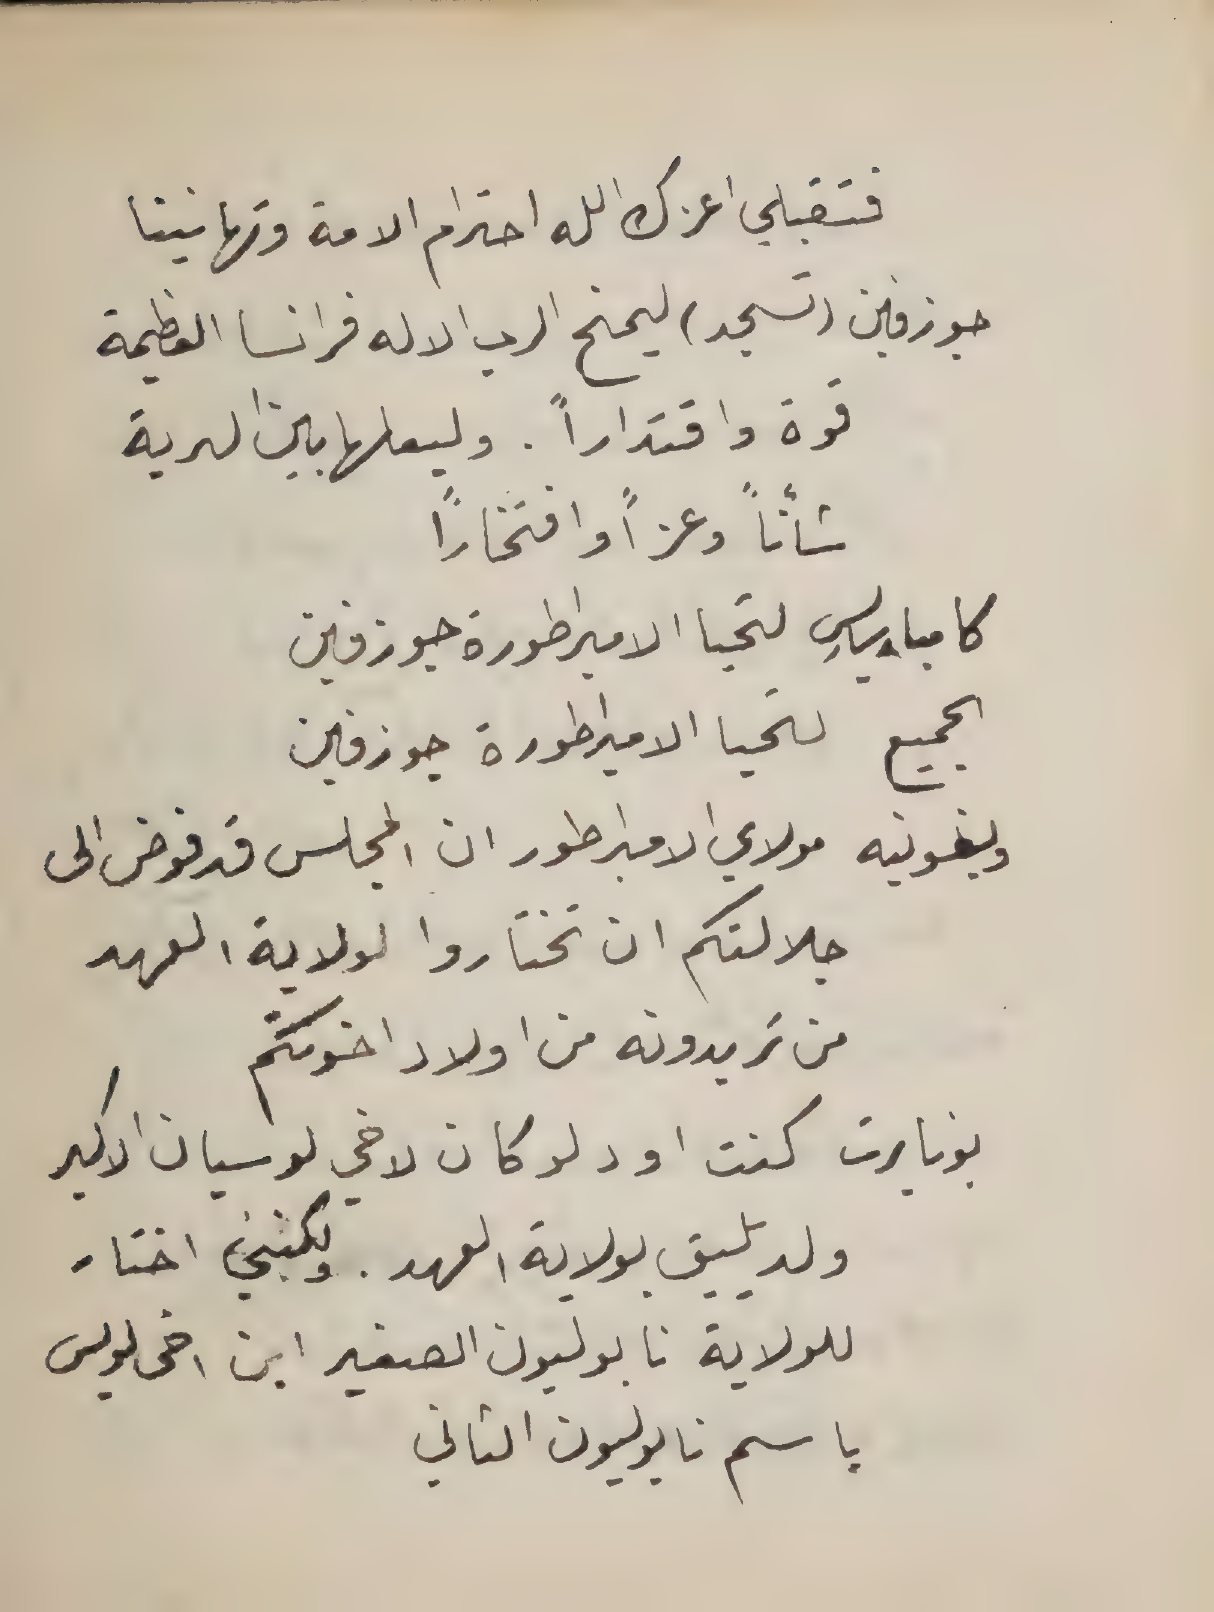 فتقبلي اعزك الله احترام الامة وتهانينا
جوزفين (تسجد) ليمنح الرب الاله فرانسا العظيمة
قوة واقتداراً . وليعلها بين البرية
شأناً وعزاً وافتخارًا
كامباسيرس لتحيا الامبراطورة جوزفين
الجميع لتحيا الامبراطورة جوزفين
مولاي الامبراطور ان المجلس قد فوض الى
جلالتكم ان تختاروا لولاية العهد
من تريدونه من اولاد اخوتكم
بونابرت كنت اود لو كان لاخي لوسيان الاكبر
ولد يليق بولاية العهد . ولكنني اختار
للولاية نابوليون الصغير ابن اخي لويس
باسم نابوليون الثاني